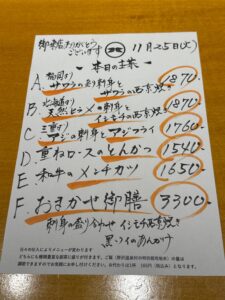 御来店ありがとう
ございます
11月25日(火)
本日の主菜
A. 静岡産 サワラの刺身と
サワラの西京焼き 1870.
B. 北海道産 天然ヒラメの刺身と
イシモチの西京焼き 1870
C. 三重産 アジの刺身とアジフライ 1760.
D. 重ねロースのとんかつ 1540
E. 和牛のメンチカツ 1650
F. おまかせ御膳 3300.
刺身の盛り合わせ イシモチ西京焼き
黒ソイのあんかけ
日々の仕入によりメニューが変わります